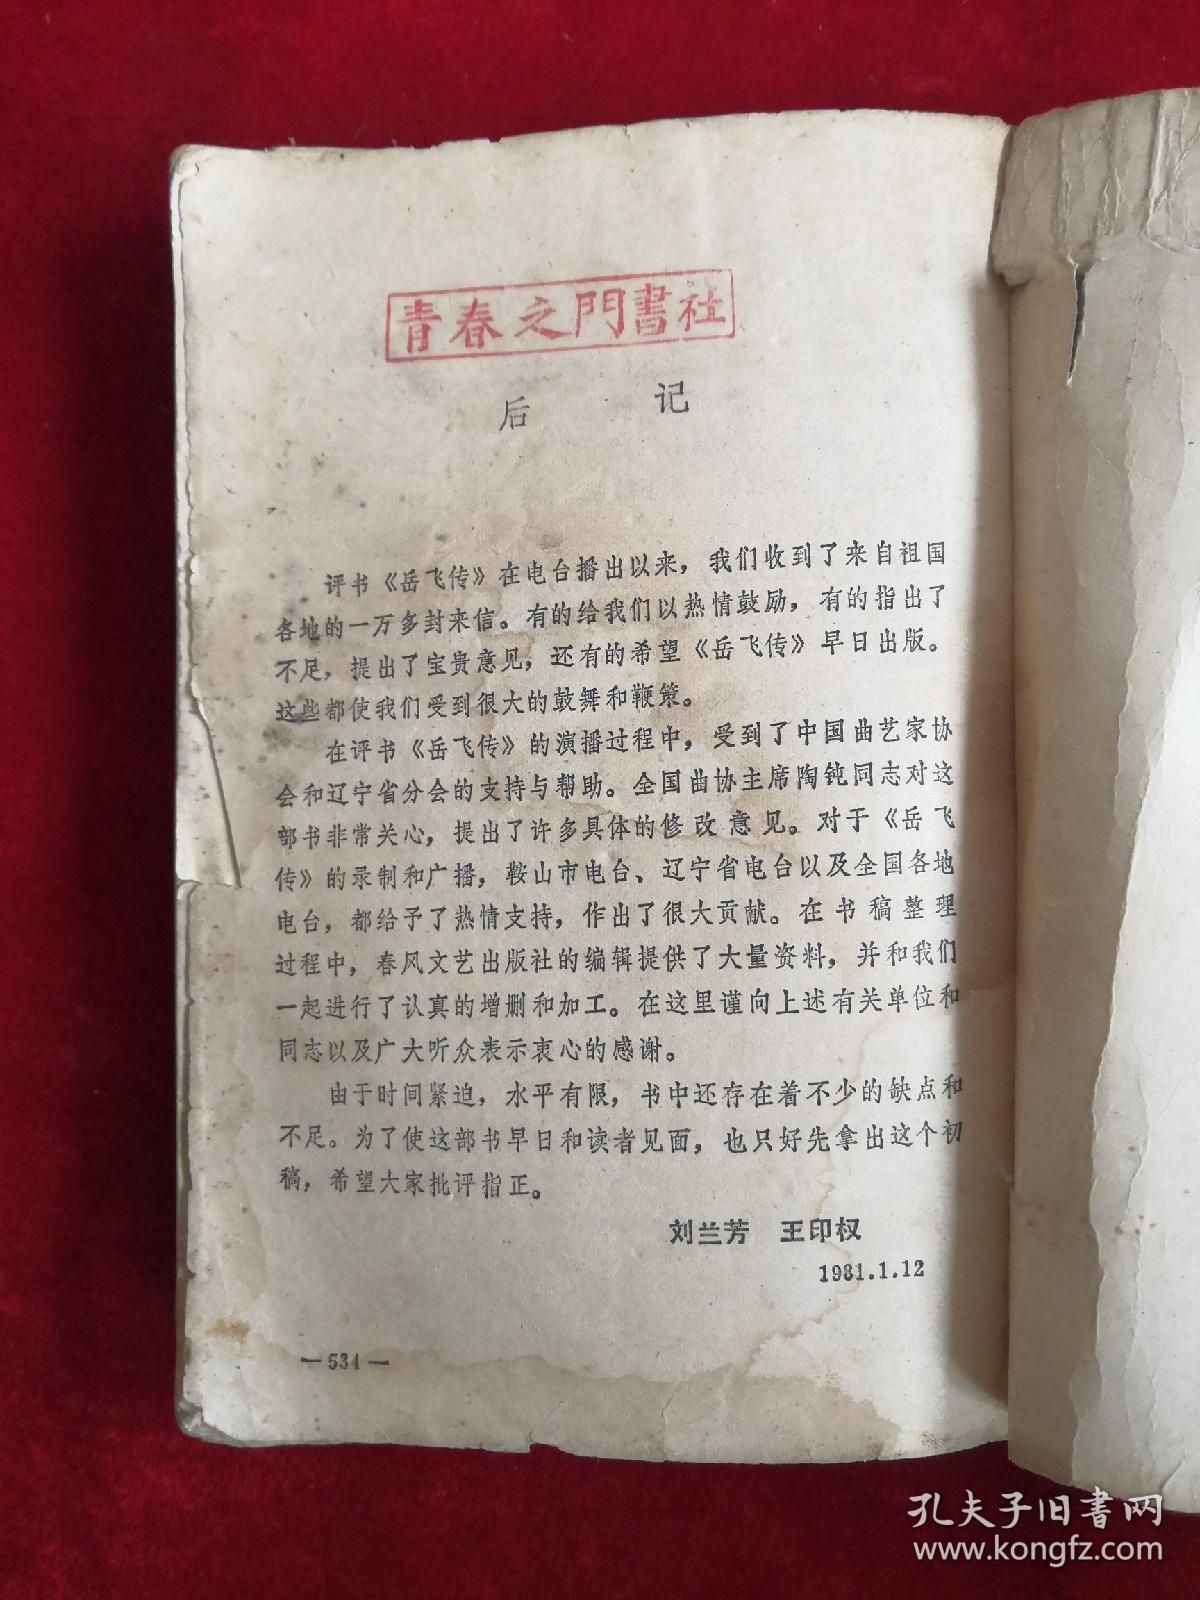 青春之門書社
后 记
评书《岳飞传》在电台播出以来，我们收到了来自祖国
各地的一万多封来信。有的给我们以热情鼓励，有的指出了
不足，提出了宝贵意见，还有的希望《岳飞传》早日出版。
这些都使我们受到很大的鼓舞和鞭策。
在评书《岳飞传》的演播过程中，受到了中国曲艺家协
会和辽宁省分会的支持与帮助。全国曲协主席陶钝同志对这
部书非常关心，提出了许多具体的修改意见。对于《岳飞
传》的录制和广播，鞍山市电台、辽宁省电台以及全国各地
电台，都给予了热情支持，作出了很大贡献。在书稿整理
过程中，春风文艺出版社的编辑提供了大量资料，并和我们
一起进行了认真的增删和加工。在这里谨向上述有关单位和
同志以及广大听众表示衷心的感谢。
由于时间紧迫，水平有限，书中还存在着不少的缺点和
不足。为了使这部书早日和读者见面，也只好先拿出这个初
稿，希望大家批评指正。
刘兰芳 王印权
1981.1.12
—534—
孔夫子旧书网
www.kongfz.com